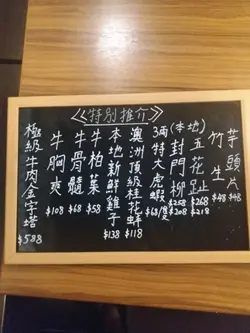 《特別推介》
芋頭片
$48
竹生
$48
(本地)
五花趾
$268
$218
封門柳
$258
$208
3兩特大虎蝦
$68
澳洲頂級桂花蚌
$118
本地新鮮雞子
$138
牛柏葉
$58
牛骨髓
$68
牛胸爽
$108
極級牛肉金字塔
$588